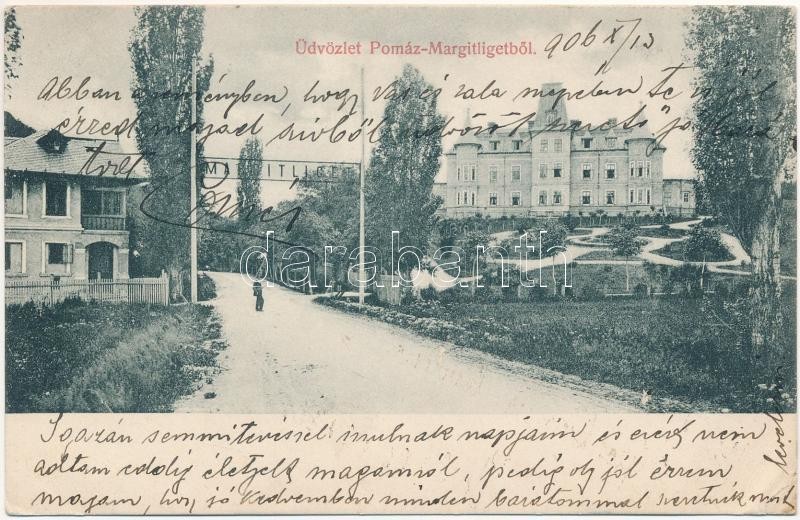 Üdvözlet Pomáz-Margitligetből.
906 X/13
Abban reményben, hogy Vas és Zala megyében Te is jól
érzed magad szívből üdvözöl
MARGITLIGET
darabanth.com
Igazán semmittevéssel mulnak napjaim és ezért nem
adtam eddig életjelt magamról, pedig oly jól érzem
magam, hogy jó kedvemben minden barátommal